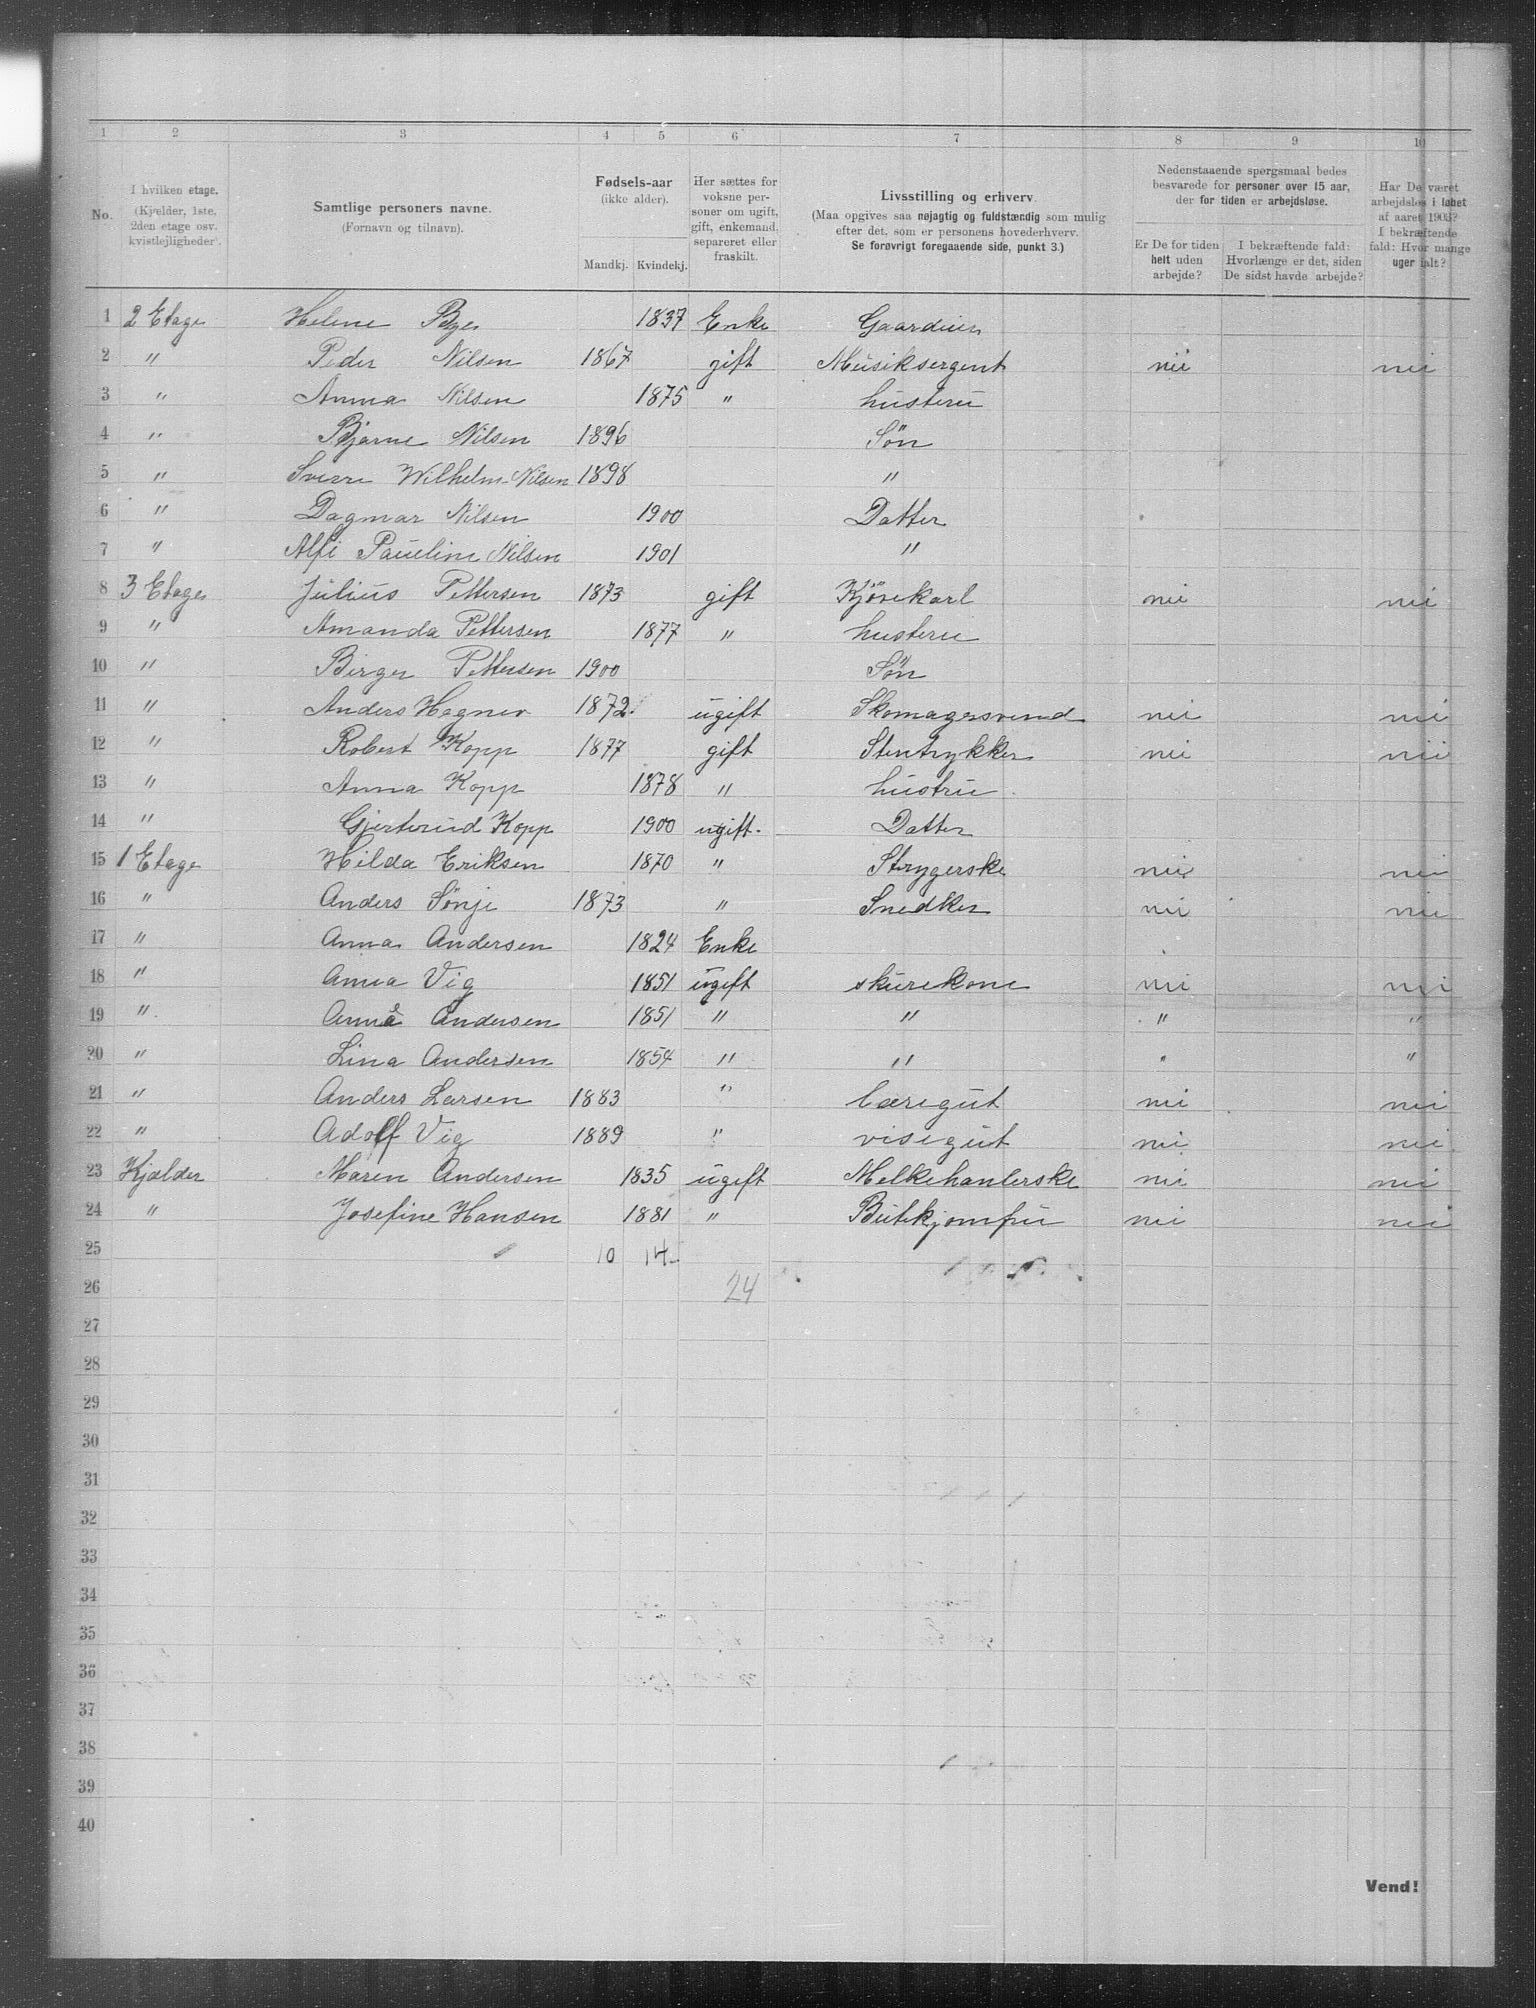 1 2 3 4 5 6 7 8 9 10
No.
I hvilken etage.
(Kjælder, 1ste,
2den etage osv.
kvistlejligheder).
Samtlige personers navne.
(Fornavn og tilnavn).
Fødsels-aar
(ikke alder).
Mandkj. Kvindekj.
Her sættes for
voksne per-
soner om ugift,
gift, enkemand,
separeret eller
fraskilt.
Livsstilling og erhverv.
(Maa opgives saa nøjagtig og fuldstændig som mulig
efter det, som er personens hovederhverv.
Se forøvrigt foregaaende side, punkt 3.)
Nedenstaaende spørgsmaal bedes
besvarede for personer over 15 aar,
der for tiden er arbejdsløse.
Er De for tiden
helt uden
arbejde?
I bekræftende fald:
Hvorlænge er det, siden
De sidst havde arbejde?
Har De været
arbejdsløs i løbet
af aaret 1903?
I bekræftende
fald: Hvor mange
uger ialt?
1 2 Etage Helene Bye 1837 Enke Gaardeier
2 " Peder Nilsen 1867 gift Musiksergent nei nei
3 " Anna Nilsen 1875 " husteru
4 " Bjarne Nilsen 1896 Søn
5 " Sverre Wilhelm Nilsen 1898 "
6 " Dagmar Nilsen 1900 Datter
7 " Alfi Pauline Nilsen 1901 "
8 3 Etage Julius Pettersen 1873 gift Kjörekarl nei nei
9 " Amanda Pettersen 1877 " husteru
10 " Birger Pettersen 1900 Søn
11 " Anders Hagner 1872 ugift Skomagersvend nei nei
12 " Robert Kopp 1877 gift Stentrykker nei nei
13 " Anna Kopp 1878 " hustru
14 " Gjerterud Kopp 1900 ugift. Datter
15 1 Etage Hilda Eriksen 1870 " Strygerske nei nei
16 " Anders Sönje 1873 " Snedker nei nei
17 " Anna Andersen 1824 Enke
18 " Anna Vig 1851 ugift skurekone nei nei
19 " Anna Andersen 1851 " " " "
20 " Lina Andersen 1854 " " " "
21 " Anders Larsen 1883 " læregut nei nei
22 " Adolf Vig 1889 " visegut nei nei
23 Kjælder Maren Andersen 1835 ugift Melkehanlerske nei nei
24 " Josefine Hansen 1881 " Butikjomfru nei nei
25 10 14
26 24
27
28
29
30
31
32
33
34
35
36
37
38
39
40
Vend!